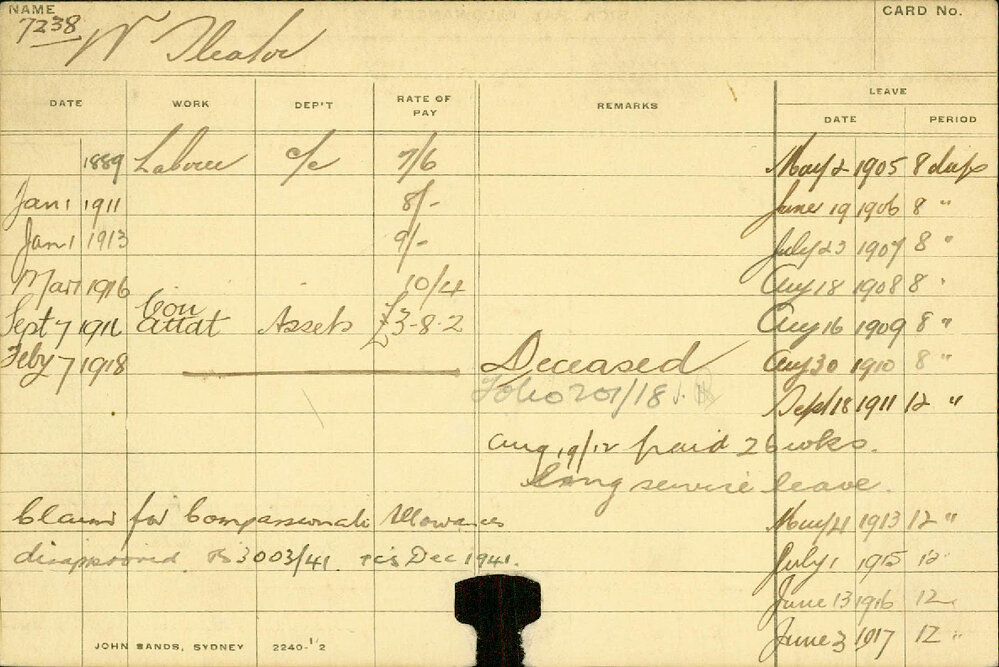 NAME
CARD No.
7238
W Theator
LEAVE
DATE WORK DEP'T RATE OF PAY REMARKS DATE PERIOD
1889 Labour c/c 7/6 May 2 1905 8 days
Jan 1 1911 8/- June 19 1906 8 "
Jan 1 1913 9/- July 23 1907 8 "
Mar 1 1916 10/4 Aug 18 1908 8 "
Sept 7 1916 Con Attdt Assets £3-8-2 Aug 16 1909 8 "
Feby 7 1918 Deceased Aug 30 1910 8 "
Folio 201/18 Sept 18 1911 12 "
Aug 19/12 paid 26 wks.
Long service leave.
Claim for Compassionate Allowance May 21 1913 12 "
disapproved. 3003/41. Dec 1941. July 1 1915 12
June 13 1916 12
June 3 1917 12 "
JOHN SANDS, SYDNEY 2240-1/2